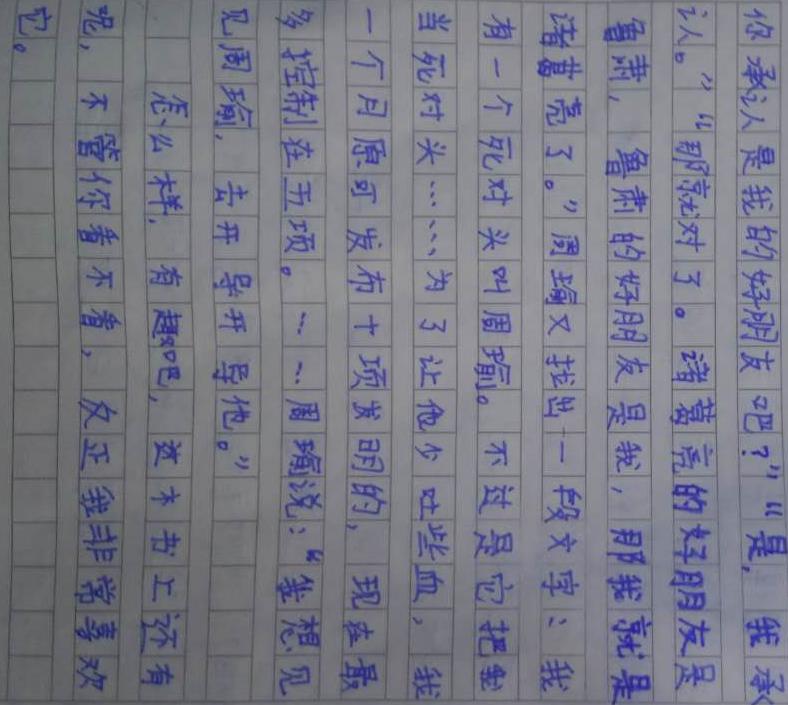 你承认是我的好朋友吧？”“是，我承
认。”“那就对了。诸葛亮的好朋友是
鲁肃，鲁肃的好朋友是我，那我就是
诸葛亮了。”周瑜又找出一段文字：我
有一个死对头叫周瑜。不过是它把我
当死对头……，为了让他少吐些血，我
一个月原可发布十项发明的，现在最
多控制在五项。……周瑜说：“我想见
见周瑜，去开导开导他。”
怎么样，有趣吧，这本书上还有
呢，不管你看不看，反正我非常喜欢
它。